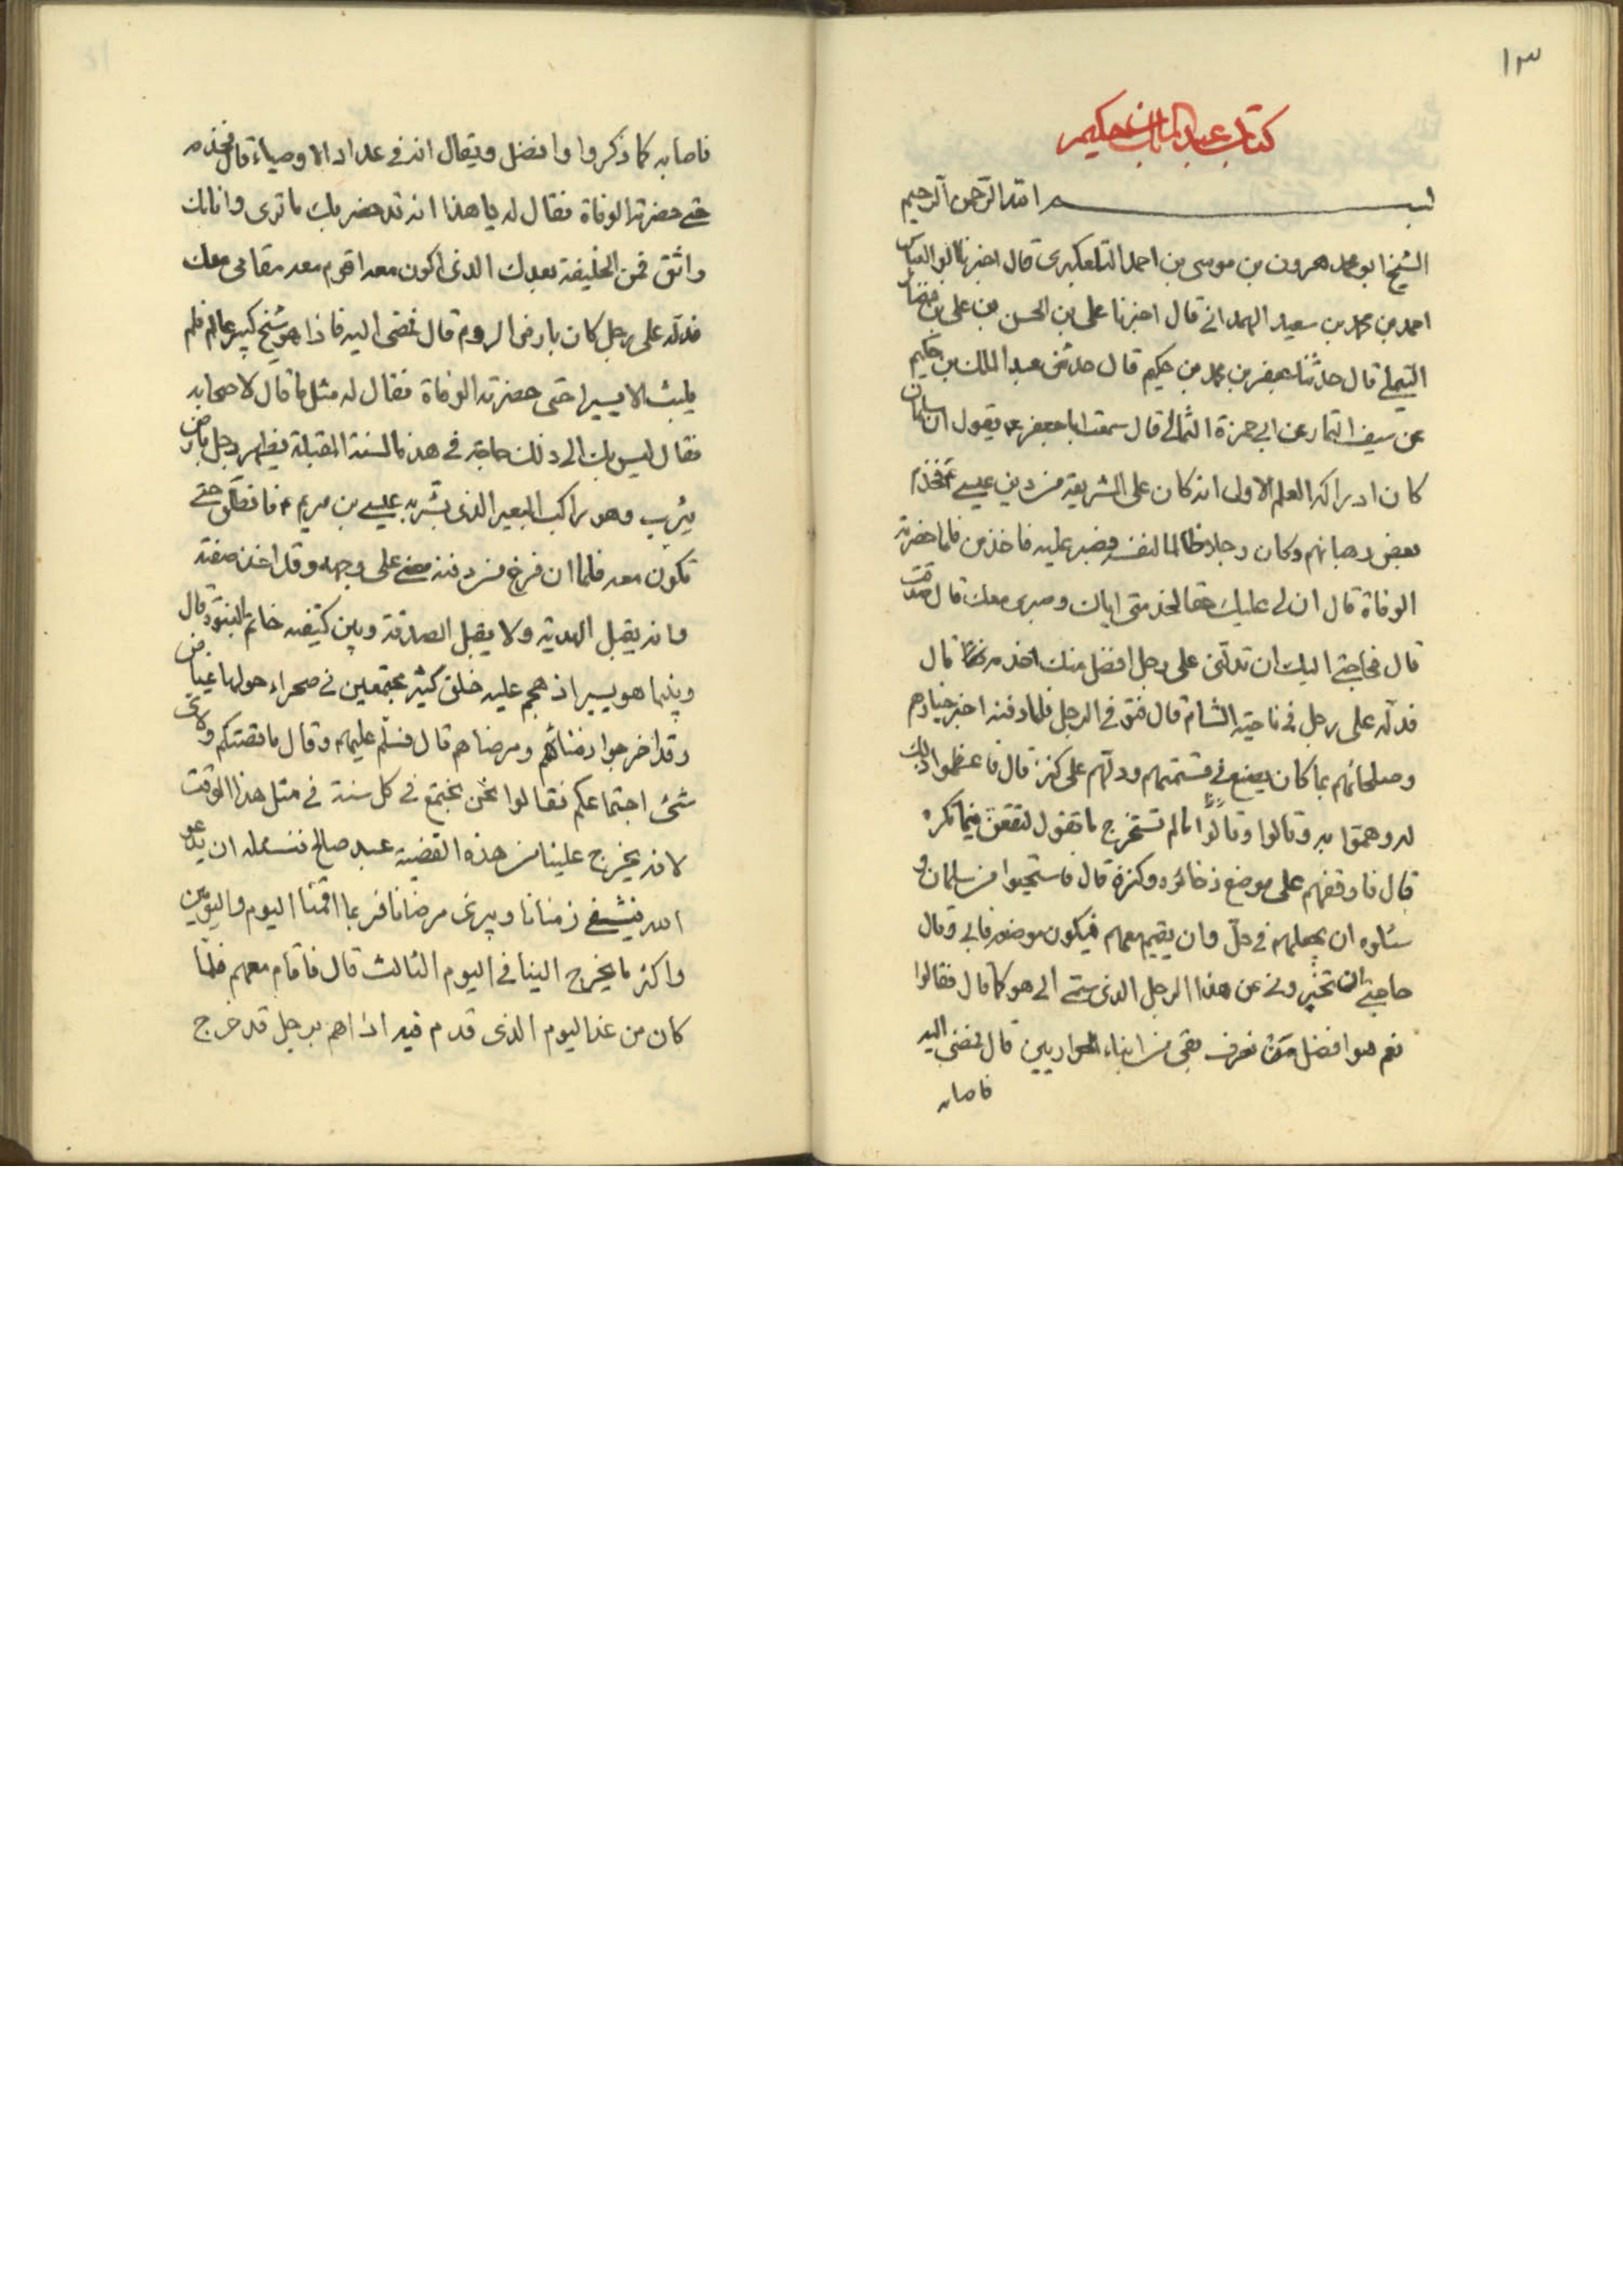 ١٣
كتاب عبد الملك بن حكيم
بسم الله الرحمن الرحيم
الشيخ ابو محمد هرون بن موسى بن احمد التلعكبرى قال اخبرنا ابو العباس
احمد بن محمد بن سعيد الهمدانى قال اخبرنا على بن الحسن بن على بن فضال
التيملى قال حدثنا جعفر بن محمد بن حكيم قال حدثنى عبد الملك بن حكيم
عن سيف التمار عن ابى حمزة الثمالى قال سمعت ابا جعفر ع يقول ان سلمان
كان ادراكه العلم الاول انه كان على الشريعة من دين عيسى ع فخدم
بعض رهبانهم وكان رجلا ظالما لنفسه فصبر عليه فاخذ من فلما حضرته
الوفاة قال ان لى عليك حقا لخدمتى اياك وصبرى معك قال صدقت
قال فحاجتى اليك ان تدلنى على رجل افضل منك اخدمه قال
فدله على رجل فى ناحية الشام قال فتوفى الرجل فلما دفنه اخبر خيارهم
وصلحائهم بما كان يصنع فى قسمتهم ودلهم على كنزه قال فاعظموا ذلك
له وهموا به وقالوا وقالوا لئن لم تستخرج ما تقول لتقعن فيما تكره
قال فاوقفهم على موضع ذخائره وكنزه قال فاستحيوا من سلمان و
سئلوه ان يجعلهم فى حل وان يقيم معهم فيكون موضعه فابى وقال
حاجتى ان تخبرونى عن هذا الرجل الذى سمى الى هو كما قال فقالوا
نعم هو افضل من نعرف بقى من ابناء الحواريين قال فمضى اليه
فاصابه
فاصابه كما ذكروا وافضل ويقال انه فى عداد الاوصياء قال فخدمه
حتى حضرته الوفاة فقال له يا هذا انه قد حضر بك ما ترى وانا بك
واثق فمن الخليفة بعدك الذى اكون معه اقوم معه مقامى معك
فدله على رجل كان بارض الروم قال فمضى اليه فاذا هو شيخ كبير عالم فلم
يلبث الا يسيرا حتى حضرته الوفاة فقال له مثل ما قال لاصحابه
فقال ليس بك الى ذلك حاجة فى هذه السنة المقبلة يظهر رجل بارض
يثرب وهو راكب البعير الذى بشر به عيسى بن مريم ع فانطلق حتى
تكون معه فلما ان فرغ من دفنه مضى على وجهه وقد اخذ صفته
وانه يقبل الهدية ولا يقبل الصدقة وبين كتيفه خاتم النبوة وقال
وبينما هو يسير اذ هجم عليه خلق كثير مجتمعين فى صحراء حولها غياض
وقد اخرجوا زمنائهم ومرضاهم قال فسلم عليهم وقال ما قصتكم ولاى
شئ اجتماعكم فقالوا نحن نجتمع فى كل سنة فى مثل هذا الوقت
لانه يخرج علينا من هذه القضية عبد صالح فنسئله ان يدعو
الله فيشفى زمنانا ويبرئ مرضانا فربما اقمنا اليوم واليومين
واكثر ما يخرج الينا فى اليوم الثالث قال فاقام معهم فلما
كان من غد اليوم الذى قدم فيه اذا هم برجل قد خرج